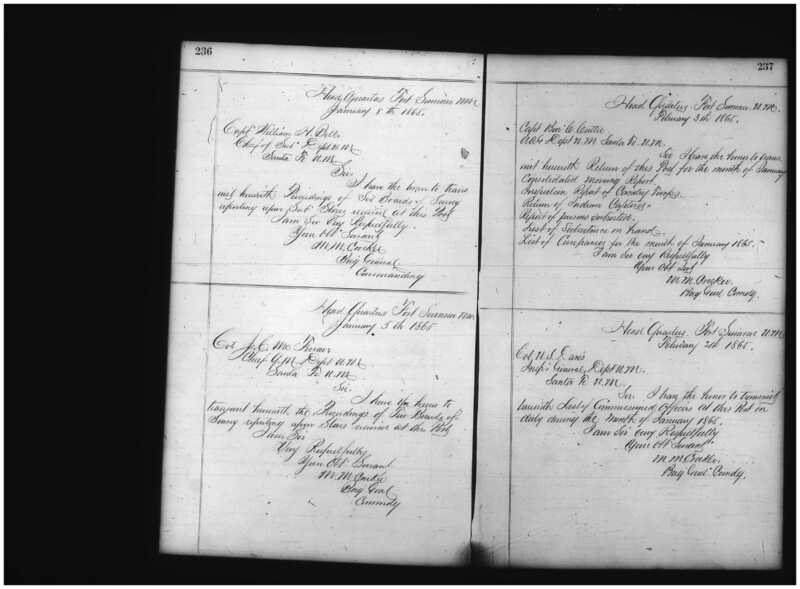 236
Head Quarters Fort Sumner N.M.
January 8th 1865.
Capt William H. Bell
Chief of Sub Dept N.M.
Santa Fe N.M.
Sir.
I have the honor to trans
mit herewith Proceedings of Six Boards of Survey
reporting upon Sub Stores received at this Post
I am Sir Very Respectfully.
Your Obt Servant
M. M. Crocker
Brig General
Commanding
Head Quarters Fort Sumner N.M.
January 5th 1865
Col J. C. Mc Ferran
Chief Q. M. Dept N.M.
Santa Fe N.M.
Sir.
I have the honor to
transmit herewith the Proceedings of Two Boards of
Survey reporting upon Stores received at this Post
I am Sir
Very Respectfully
Your Obt Servant
M. M. Crocker
Brig Genl
Commdg
237
Head Quarters Fort Sumner N.M.
February 5th 1865.
Capt Ben C. Cutler
AAG Dept N.M Santa Fe N.M.
Sir I have the honor to trans
mit herewith Return of this Post for the month of January
Consolidated morning Report
Inspection Report of Cavalry Troops.
Return of Indian Captives.
Report of persons
List of Subsistence on hand.
List of Companies for the month of January 1865.
I am Sir very Respectfully
Your Obt Svt
M. M. Crocker.
Brig Genl Comdg.
Head Quarters Fort Sumner N.M
February 2d 1865.
Col N. S. Davis
Insp General Dept N.M.
Santa Fe N.M.
Sir. I have the honor to transmit
herewith List of Commissioned Officers at this Post on
duty during the Month of January 1865.
I am Sir very Respectfully
Your Obt Servant
M M. Crocker.
Brig Genl Comdg.